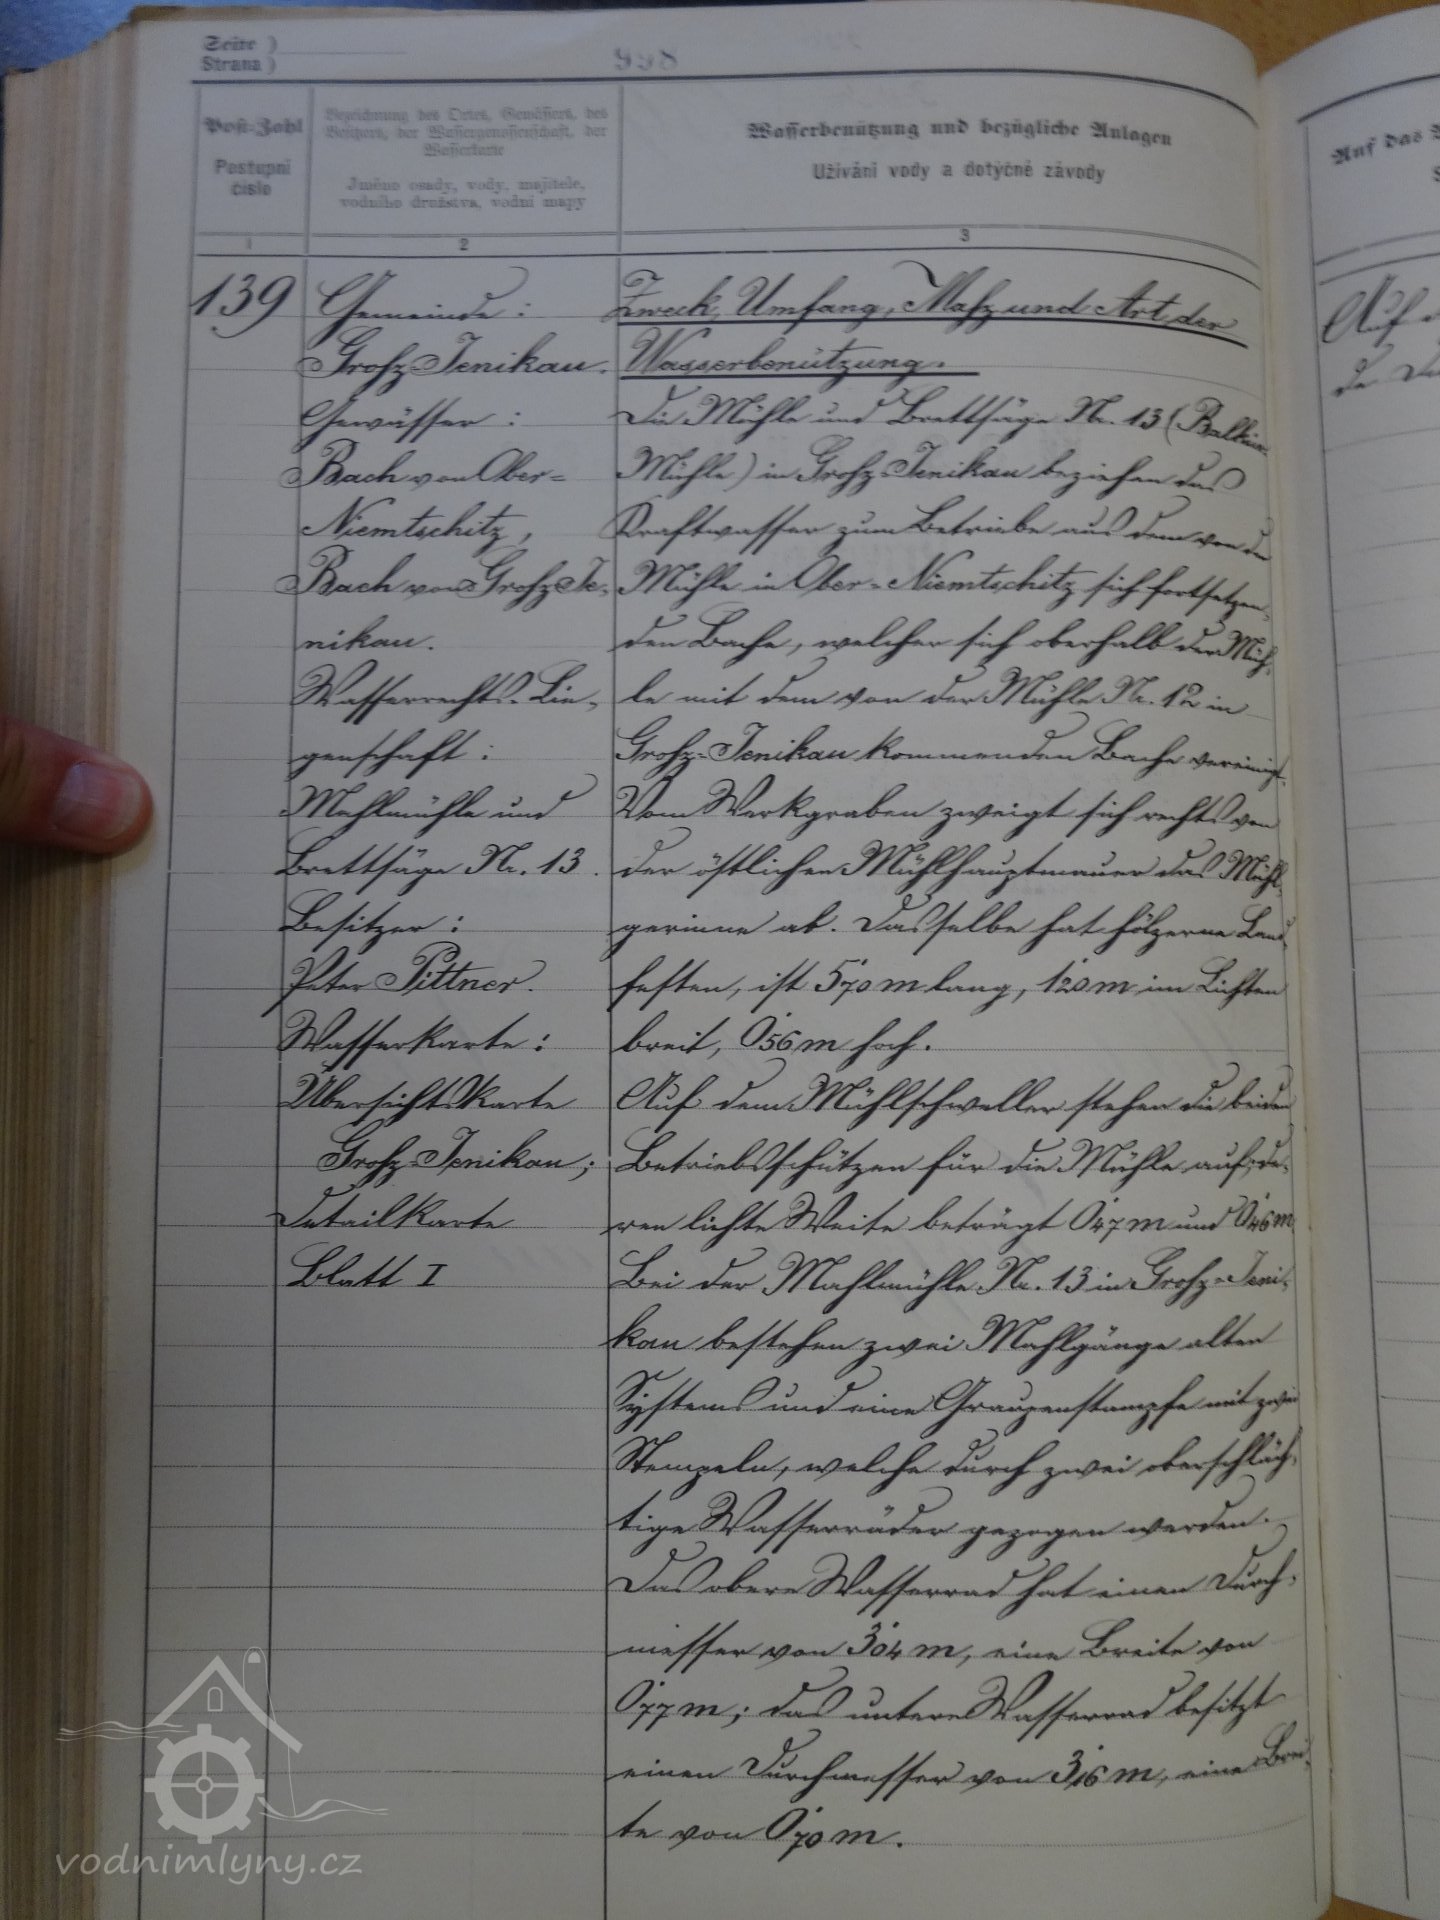 Seite )
Strana )
558
Post-Zahl
Postupní
číslo
Bezeichnung des Ortes, Gewässers, des
Besitzers, der Wassergenossenschaft, der
Wasserkarte
Jméno osady, vody, majitele,
vodního družstva, vodní mapy
Wasserbenützung und bezügliche Anlagen
Užívání vody a dotyčné závody
1
2
3
139
Gemeinde:
Grosz-Jenikau.
Gewässer:
Bach von Ober-
Niemtschitz,
Bach von Grosz-Je-
nikau.
Wasserrechts-Lie-
genschaft:
Mahlmühle und
Brettsäge Nr. 13.
Besitzer:
Peter Pittner.
Wasserkarte:
Übersichtskarte
Grosz-Jenikau;
Detailkarte
Blatt I
Zweck, Umfang, Masz und Art der
Wasserbenützung.
Die Mühle und Brettsäge Nr. 13 (
Mühle) in Grosz-Jenikau beziehen das
Kraftwasser zum Betriebe aus dem von der
Mühle in Ober-Niemtschitz sich fortsetzen-
den Bache, welcher sich oberhalb der Müh-
le mit dem von der Mühle Nr. 12 in
Grosz-Jenikau kommenden Bache vereinigt.
Vom Werkgraben zweigt sich rechts von
der östlichen Mühlhauptmauer das Mühl-
gerinne ab. Dasselbe hat hölzerne Land-
festen, ist 5·70 m lang, 1·20 m im Lichten
breit, 0·56 m hoch.
Auf dem Mühlschweller stehen die beiden
Betriebsschützen für die Mühle auf; de-
ren lichte Weite beträgt 0·47 m und 0·46 m.
Bei der Mahlmühle Nr. 13 in Grosz-Jeni-
kau bestehen zwei Mahlgänge alten
Systems und eine Graupenstampfe mit zwei
Stempeln, welche durch zwei oberschläch-
tige Wasserräder gezogen werden.
Das obere Wasserrad hat einen Durch-
messer von 3·04 m, eine Breite von
0·77 m; das untere Wasserrad besitzt
einen Durchmesser von 3·16 m, eine Brei-
te von 0·70 m.
Auf das
Auf
vodnimlyny.cz